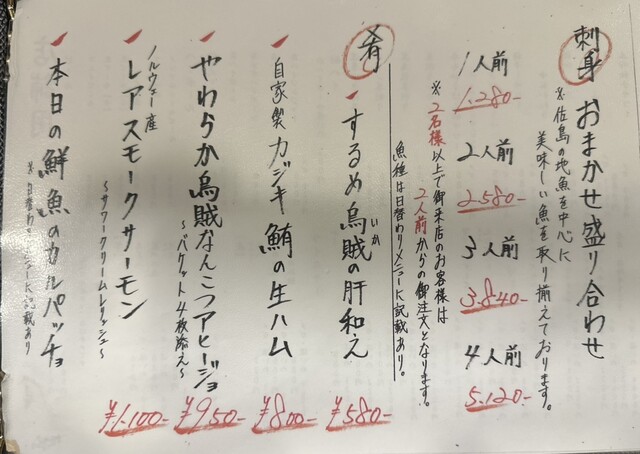 刺身 おまかせ盛り合わせ
※佐島の地魚を中心に
美味しい魚を取り揃えております。
1人前
1.280-
2人前
2580-
3人前
3.840-
4人前
5.120-
※2名様以上で御来店のお客様は
2人前からの御注文となります。
魚種は日替わりメニューに記載あり。
肴
するめ烏賊の肝和え
いか
¥580-
自家製カジキ鮪の生ハム
¥800-
やわらか烏賊なんこつアヒージョ
～バケット4枚添え～
¥950-
ノルウェー産
レアスモークサーモン
～サワークリームレリッシュ～
¥1.100-
本日の鮮魚のカルパッチョ
※日替わりメニューに記載あり